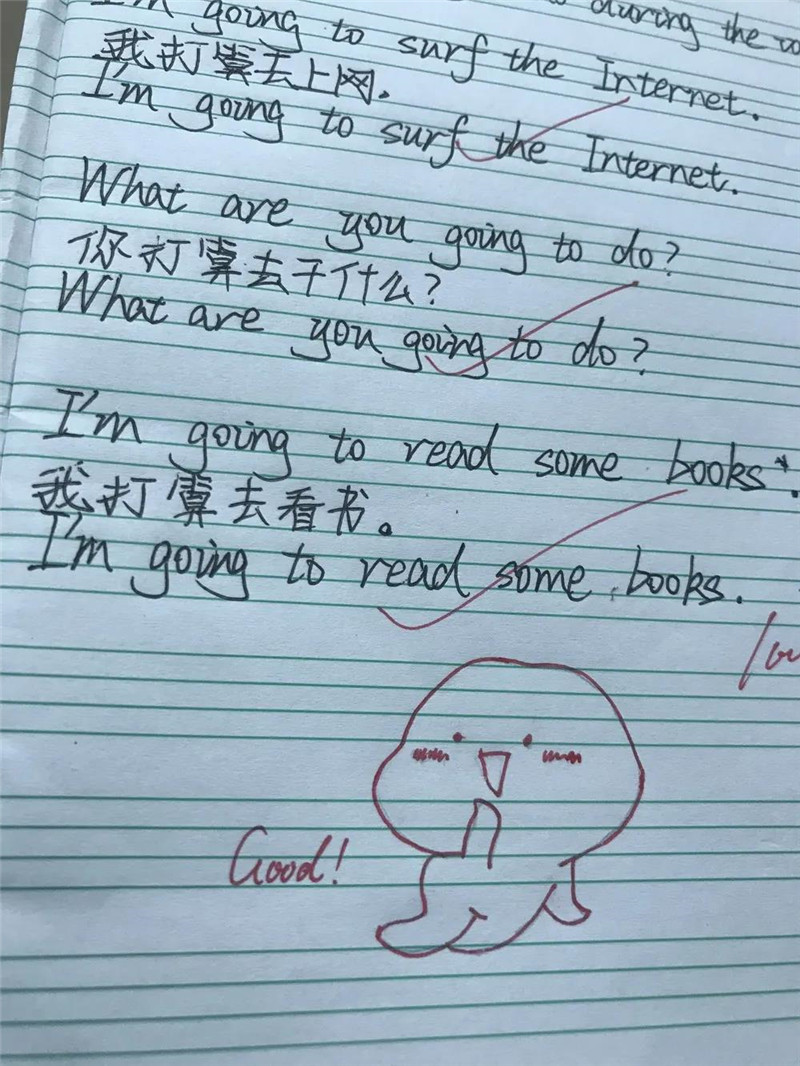 during the
I'm going to surf the Internet.
我打算去上网.
I'm going to surf the Internet.
What are you going to do?
你打算去干什么?
What are you going to do?
I'm going to read some books.
我打算去看书。
I'm going to read some books.
Good!